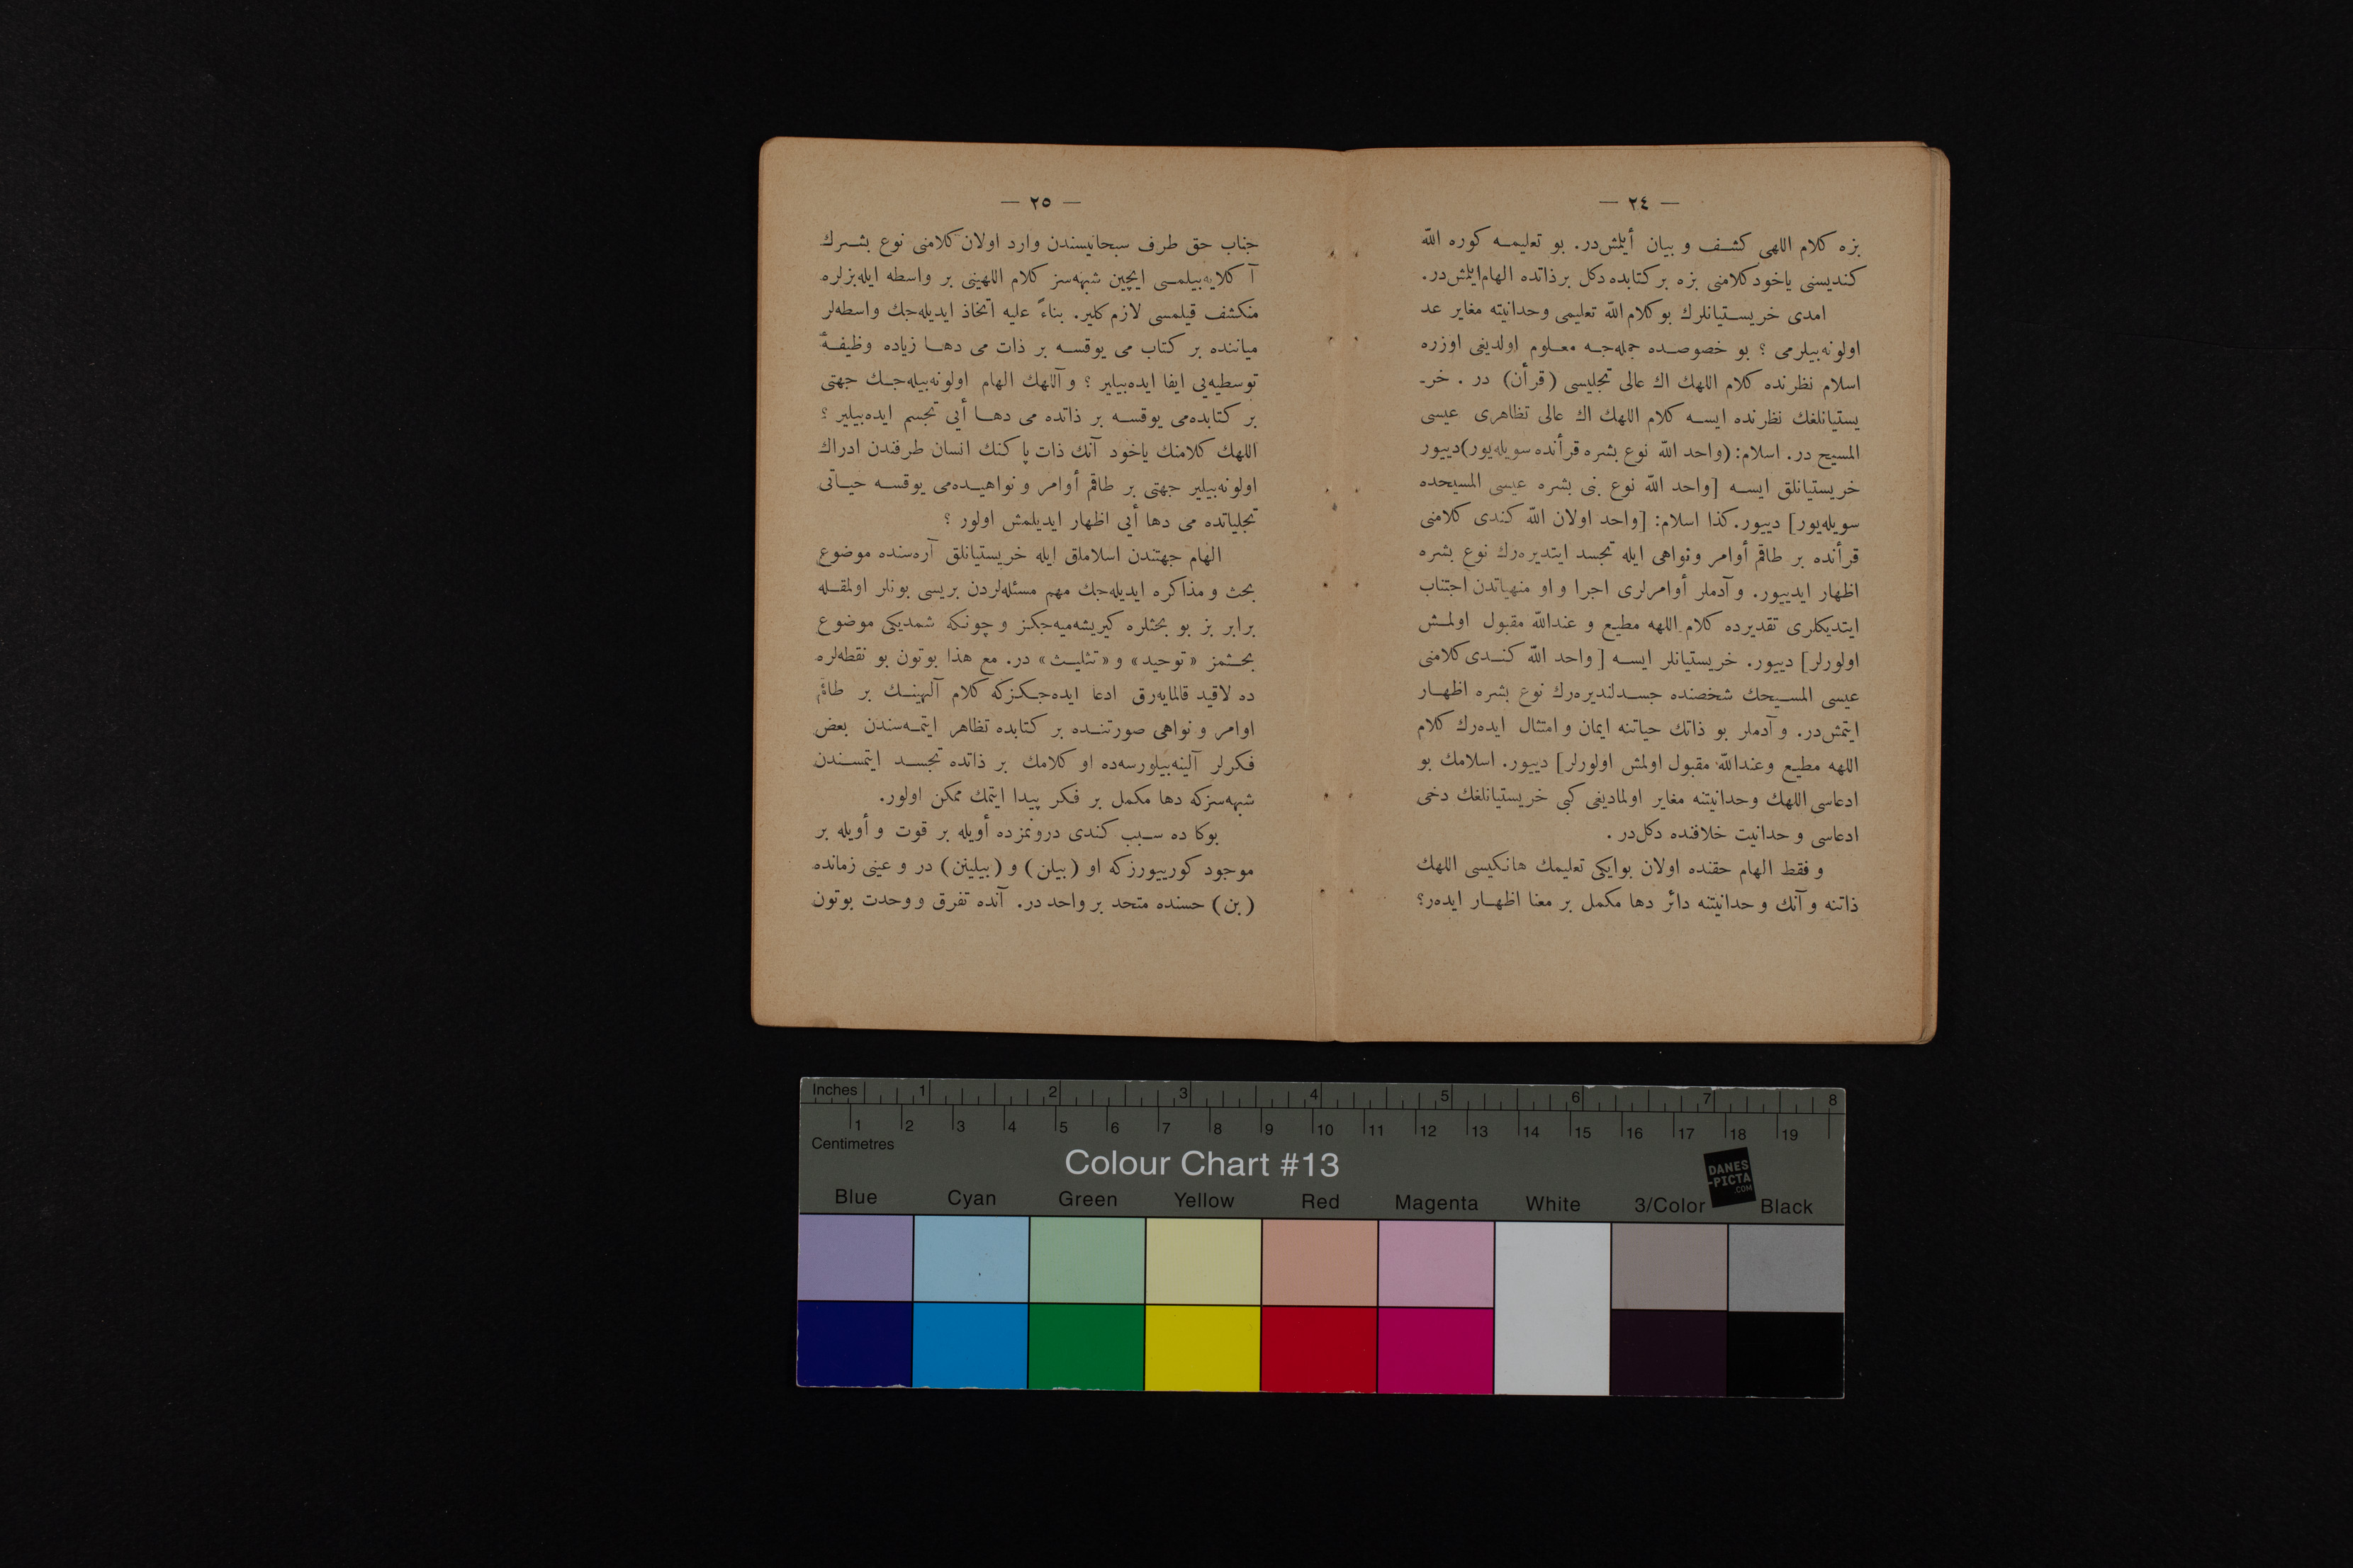 — ٢٤ —
بزه كلام اللهی كشف و بيان أيلمش‌در. بو تعليمه كوره اللّه
كنديسنی ياخود كلامنی بزه بر كتابده دكل بر ذاتده الهام ايلمش‌در.
امدی خريستيانلرك بو كلام اللّه تعليمی وحدانيته مغاير عد
اولونه‌بيلرمی ؟ بو خصوصده جمله‌جه معلوم اولديغی اوزره
اسلام نظرنده كلام اللهك اك عالی تجليسی (قرأن) در . خر-
يستيانلغك نظرنده ايسه كلام اللهك اك عالی تظاهری عيسی
المسيح در. اسلام: (واحد اللّه نوع بشره قرأنده سويله‌يور) دييور
خريستيانلق ايسه [واحد اللّه نوع بنی بشره عيسی المسيحده
سويله‌يور] دييور. كذا اسلام: [واحد اولان اللّه كندی كلامنی
قرأنده بر طاقم أوامر ونواهی ايله تجسد ايتديره‌رك نوع بشره
اظهار ايدييور. و آدملر أوامرلری اجرا و او منهياتدن اجتناب
ايتديكلری تقديرده كلام اللهه مطيع و عنداللّه مقبول اولمش
اولورلر] دييور. خريستيانلر ايسه [واحد اللّه كندی كلامنی
عيسی المسيحك شخصنده جسدلنديره‌رك نوع بشره اظهار
ايتمش‌در. و آدملر بو ذاتك حياتنه ايمان و امتثال ايده‌رك كلام
اللهه مطيع وعنداللّه مقبول اولمش اولورلر] دييور. اسلامك بو
ادعاسی اللهك وحدانيتنه مغاير اولماديغی كبی خريستيانلغك دخی
ادعاسی وحدانيت خلافنده دكل‌در .
و فقط الهام حقنده اولان بوايكی تعليمك هانكيسی اللهك
ذاتنه و آنك وحدانيتنه دائر دها مكمل بر معنا اظهار ايده‌ر؟
— ٢٥ —
جناب حق طرف سبحانيسندن وارد اولان كلامنی نوع بشرك
آكلايه‌بيلمسی ايچين شبهه‌سز كلام اللهينی بر واسطه ايله بزلره
منكشف قيلمسی لازم كلير. بناءً عليه اتخاذ ايديله‌جك واسطه‌لر
مياننده بر كتاب می يوقسه بر ذات می دها زياده وظيفهٔ
توسطيه‌يی ايفا ايده‌بيلير ؟ و آللهك الهام اولونه‌بيله‌جك جهتی
بر كتابده‌می يوقسه بر ذاتده می دها أيی تجسم ايده‌بيلير ؟
اللهك كلامنك ياخود آنك ذات پاكنك انسان طرفندن ادراك
اولونه‌بيلير جهتی بر طاقم أوامر و نواهيده‌می يوقسه حياتی
تجلياتده می دها أيی اظهار ايديلمش اولور ؟
الهام جهتندن اسلاملق ايله خريستيانلق آره‌سنده موضوع
بحث و مذاكره ايديله‌جك مهم مسئله‌لردن بريسی بونلر اولمقله
برابر بز بو بحثلره كيريشه‌ميه‌جكز و چونكه شمديكی موضوع
بحثمز «توحيد» و «تثليث» در. مع هذا بوتون بو نقطه‌لره
ده لاقيد قالمايه‌رق ادعا ايده‌جكزكه كلام آلهينك بر طاقم
اوامر و نواهی صورتنده بر كتابده تظاهر ايتمه‌سندن بعض
فكرلر آلينه‌بيلورسه‌ده او كلامك بر ذاتده تجسد ايتمسندن
شبهه‌سزكه دها مكمل بر فكر پيدا ايتمك ممكن اولور.
بوكا ده سبب كندی درونمزده أويله بر قوت و أويله بر
موجود كورييورزكه او (بيلن) و (بيلينن) در و عينی زمانده
(بن) حسنده متحد بر واحد در. آنده تفرق و وحدت بوتون
Inches 1 2 3 4 5 6 7 8
1 2 3 4 5 6 7 8 9 10 11 12 13 14 15 16 17 18 19
Centimetres
Colour Chart #13
DANES
-PICTA
.COM
Blue Cyan Green Yellow Red Magenta White 3/Color Black